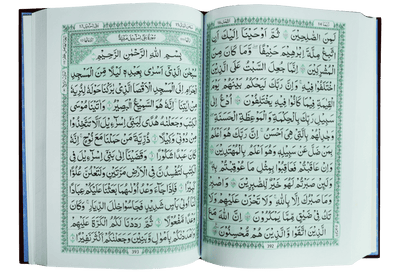 لَمِنَ الصّٰلِحِيْنَ ثُمَّ اَوْحَيْنَآ اِلَيْكَ اَنِ
اتَّبِعْ مِلَّةَ اِبْرٰهِيْمَ حَنِيْفًا وَمَا كَانَ مِنَ
الْمُشْرِكِيْنَ اِنَّمَا جُعِلَ السَّبْتُ عَلَى الَّذِيْنَ
اخْتَلَفُوْا فِيْهِ وَاِنَّ رَبَّكَ لَيَحْكُمُ بَيْنَهُمْ يَوْمَ
الْقِيٰمَةِ فِيْمَا كَانُوْا فِيْهِ يَخْتَلِفُوْنَ اُدْعُ اِلٰى
سَبِيْلِ رَبِّكَ بِالْحِكْمَةِ وَالْمَوْعِظَةِ الْحَسَنَةِ
وَجَادِلْهُمْ بِالَّتِيْ هِيَ اَحْسَنُ اِنَّ رَبَّكَ هُوَ اَعْلَمُ
بِمَنْ ضَلَّ عَنْ سَبِيْلِهٖ وَهُوَ اَعْلَمُ بِالْمُهْتَدِيْنَ
وَاِنْ عَاقَبْتُمْ فَعَاقِبُوْا بِمِثْلِ مَا عُوْقِبْتُمْ بِهٖ
وَلَئِنْ صَبَرْتُمْ لَهُوَ خَيْرٌ لِّلصّٰبِرِيْنَ وَاصْبِرْ وَمَا
صَبْرُكَ اِلَّا بِاللّٰهِ وَلَا تَحْزَنْ عَلَيْهِمْ وَلَا
تَكُ فِيْ ضَيْقٍ مِّمَّا يَمْكُرُوْنَ اِنَّ اللّٰهَ مَعَ
الَّذِيْنَ اتَّقَوْا وَّالَّذِيْنَ هُمْ مُّحْسِنُوْنَ
بِسْمِ اللّٰهِ الرَّحْمٰنِ الرَّحِيْمِ
سُبْحٰنَ الَّذِيْٓ اَسْرٰى بِعَبْدِهٖ لَيْلًا مِّنَ الْمَسْجِدِ
الْحَرَامِ اِلَى الْمَسْجِدِ الْاَقْصَا الَّذِيْ بٰرَكْنَا حَوْلَهٗ لِنُرِيَهٗ
مِنْ اٰيٰتِنَا اِنَّهٗ هُوَ السَّمِيْعُ الْبَصِيْرُ وَاٰتَيْنَا مُوْسَى
الْكِتٰبَ وَجَعَلْنٰهُ هُدًى لِّبَنِيْٓ اِسْرَآءِيْلَ اَلَّا تَتَّخِذُوْا
مِنْ دُوْنِيْ وَكِيْلًا ذُرِّيَّةَ مَنْ حَمَلْنَا مَعَ نُوْحٍ اِنَّهٗ
كَانَ عَبْدًا شَكُوْرًا وَقَضَيْنَآ اِلٰى بَنِيْٓ اِسْرَآءِيْلَ فِي
الْكِتٰبِ لَتُفْسِدُنَّ فِي الْاَرْضِ مَرَّتَيْنِ وَلَتَعْلُنَّ عُلُوًّا
كَبِيْرًا فَاِذَا جَآءَ وَعْدُ اُوْلٰىهُمَا بَعَثْنَا عَلَيْكُمْ عِبَادًا
لَّنَآ اُولِيْ بَاْسٍ شَدِيْدٍ فَجَاسُوْا خِلٰلَ الدِّيَارِ وَكَانَ
وَعْدًا مَّفْعُوْلًا ثُمَّ رَدَدْنَا لَكُمُ الْكَرَّةَ عَلَيْهِمْ
وَاَمْدَدْنٰكُمْ بِاَمْوَالٍ وَّبَنِيْنَ وَجَعَلْنٰكُمْ اَكْثَرَ نَفِيْرًا